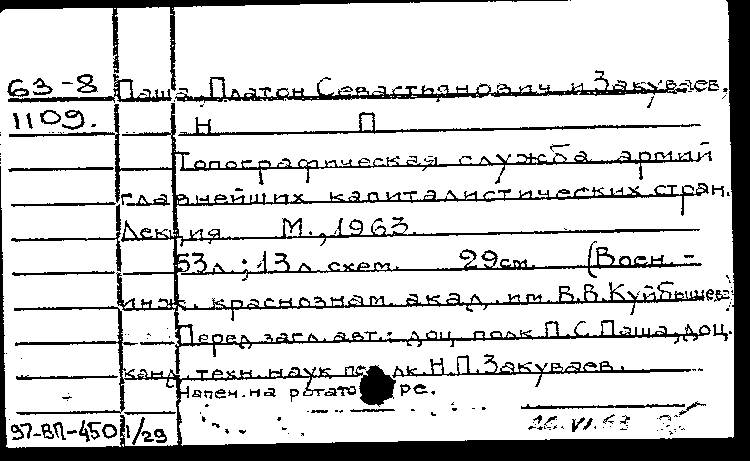 63-8 Паша, Платон Севастьянович и Закуваев,
1109. Н П
Топографическая служба армий
главнейших капиталистических стран.
Лекция М., 1963.
53л.; 13л. схем. 29см. (Воен.-
инж. краснознам. акад. им. В.В.Куйбышева)
Перед загл. авт.: доц. полк П.С.Паша, доц.
канд. техн. наук полк. Н.П.Закуваев.
Напеч. на ротаторе.
97-ВП-450 1/29 20.VI.63